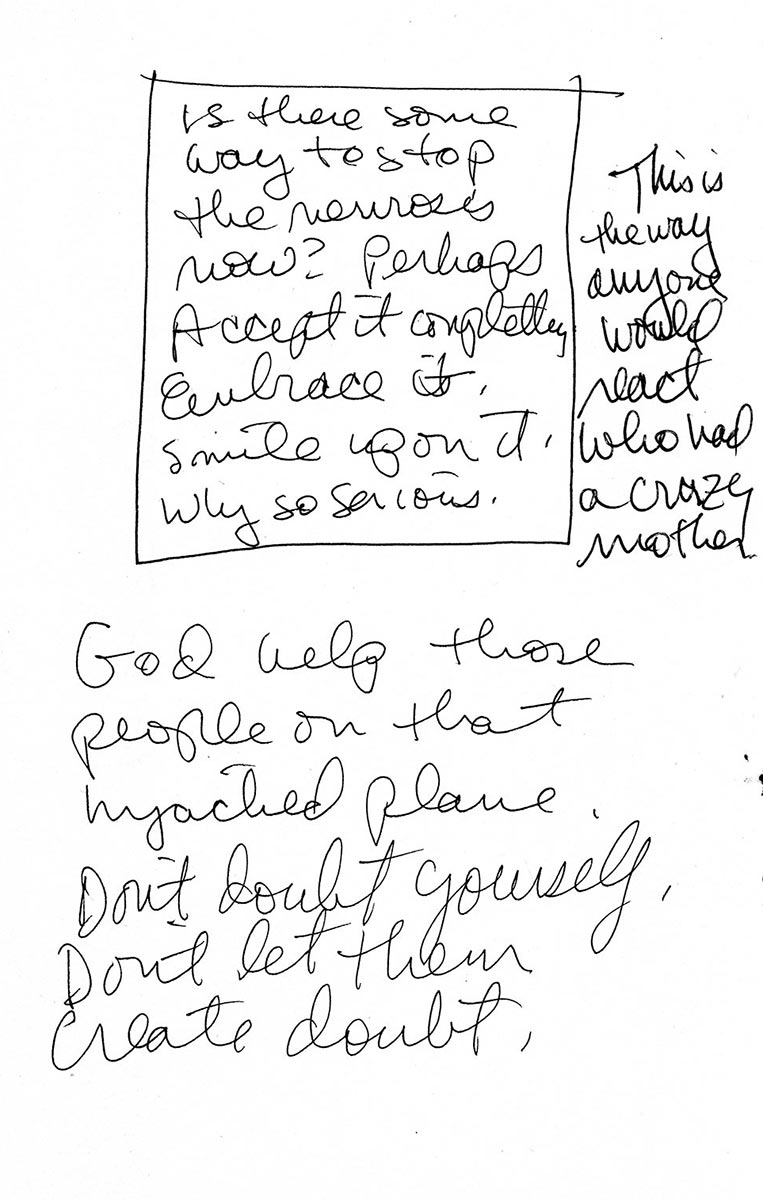 is there some
way to stop
the neurosis
now? Perhaps
Accept it completely
Embrace it.
smile upon it.
Why so serious.
This is
the way
anyone
would
react
who had
a crazy
mother
God help those
people on that
hijacked plane.
Don't doubt yourself,
Don't let them
create doubt,